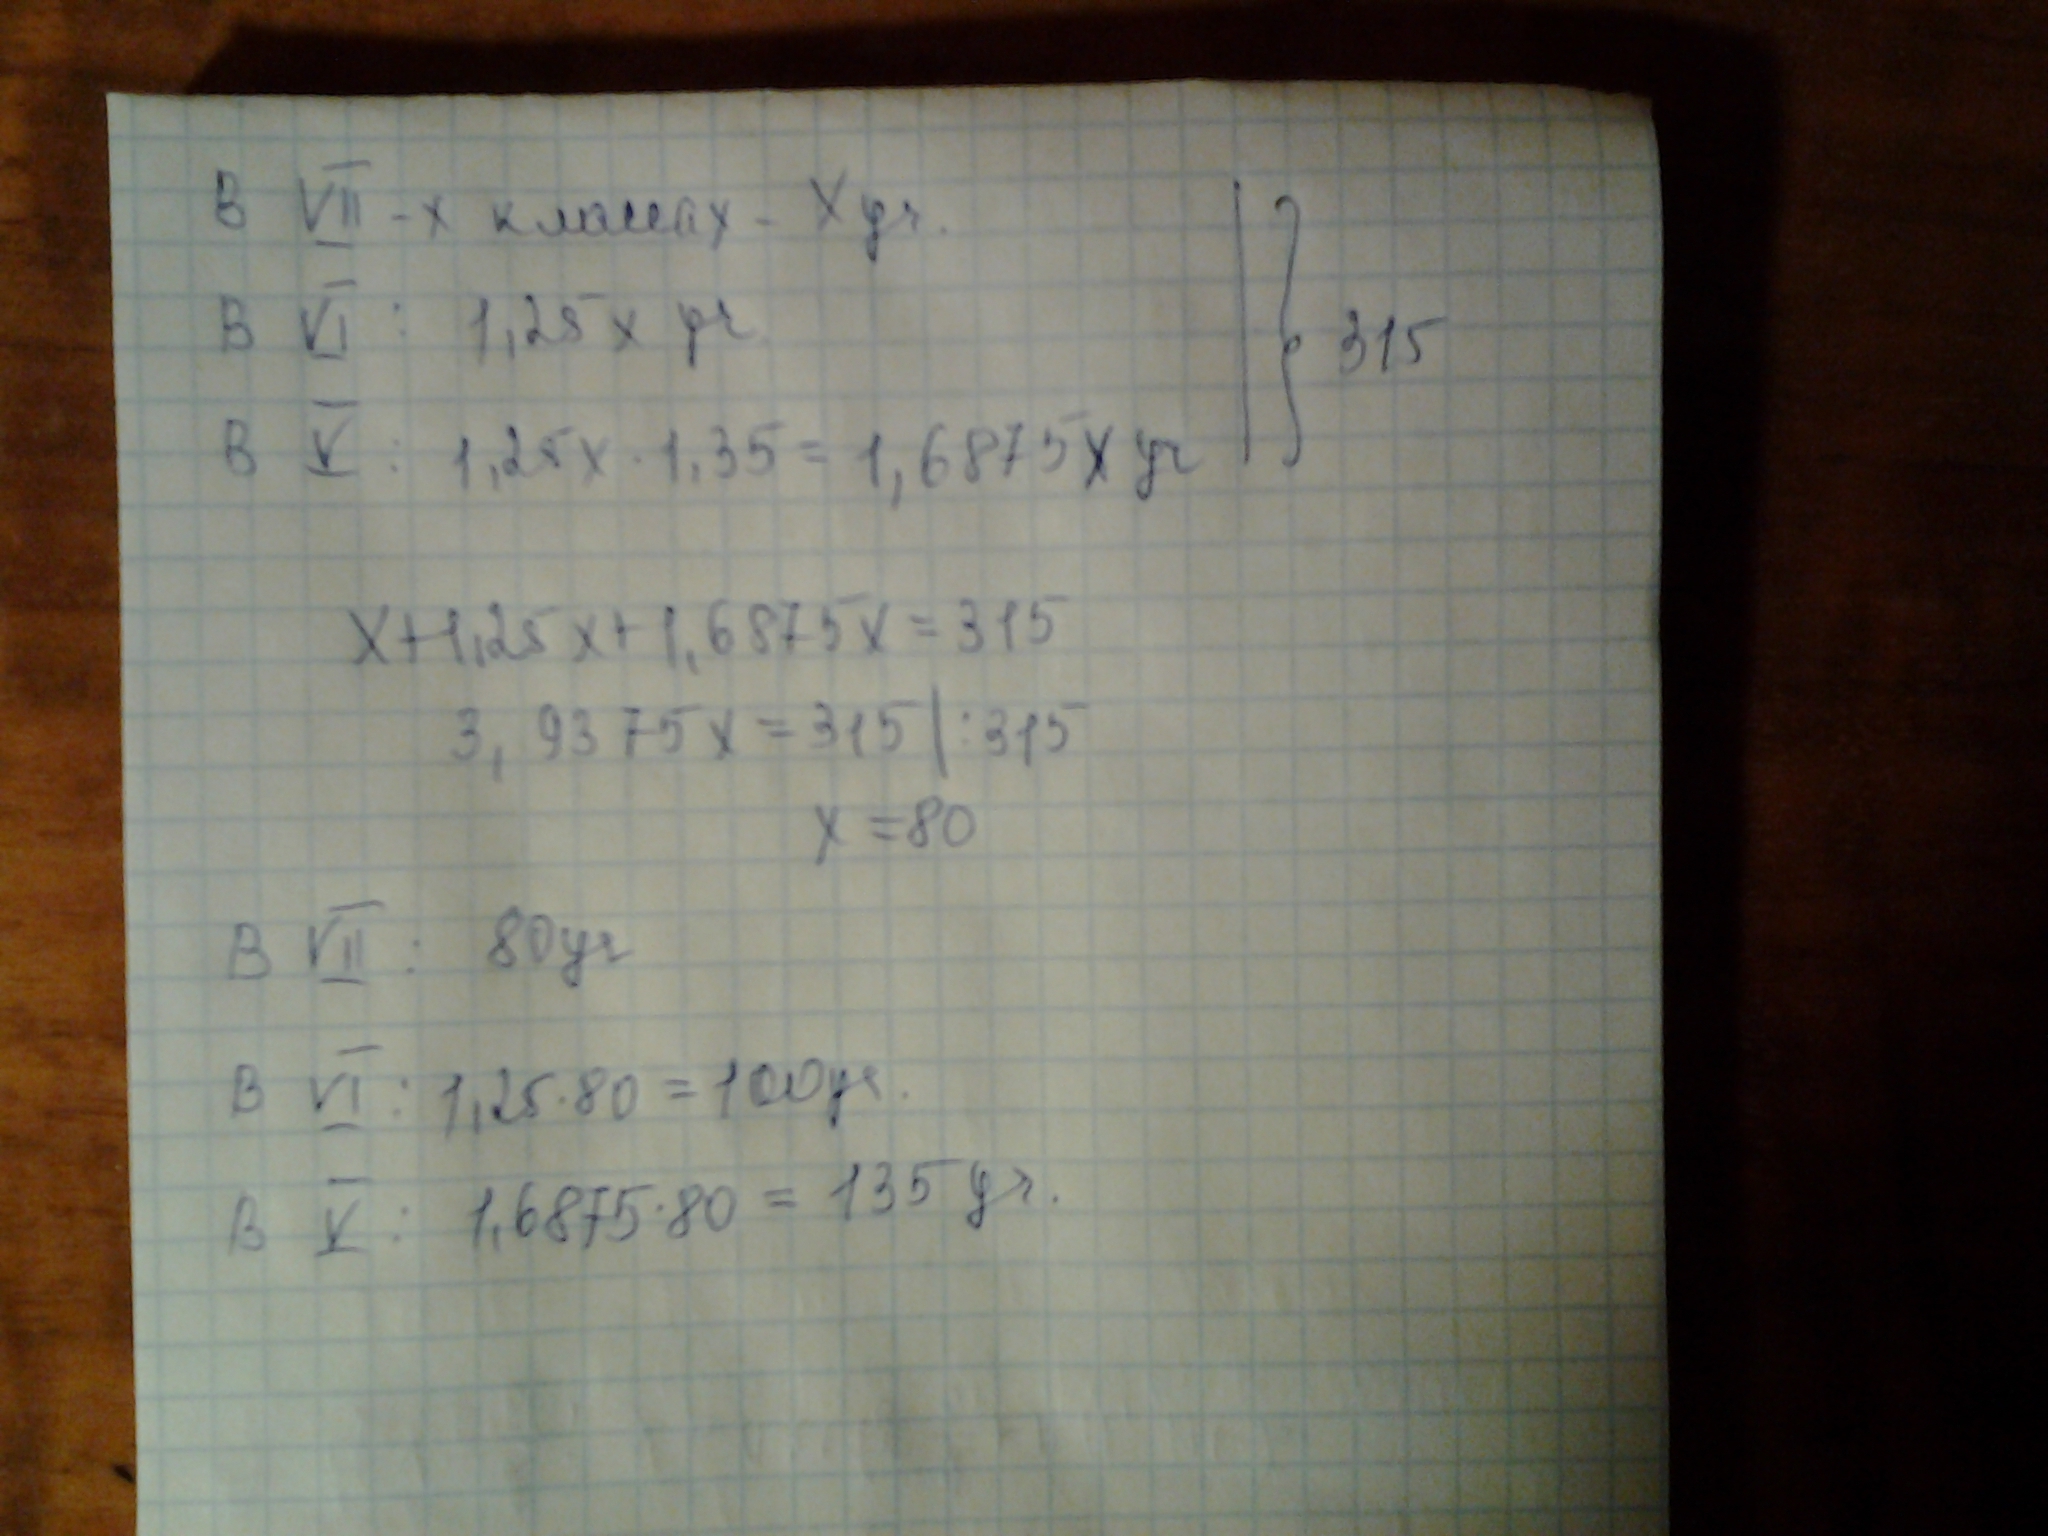 В VII-х классах - X уч.
В VI : 1,25x уч
В V : 1,25x · 1,35 = 1,6875x уч
315
X+1,25x+1,6875x=315
3,9375x=315|:315
x=80
В VII : 80уч
В VI : 1,25·80=100уч.
В V : 1,6875·80 = 135 уч.